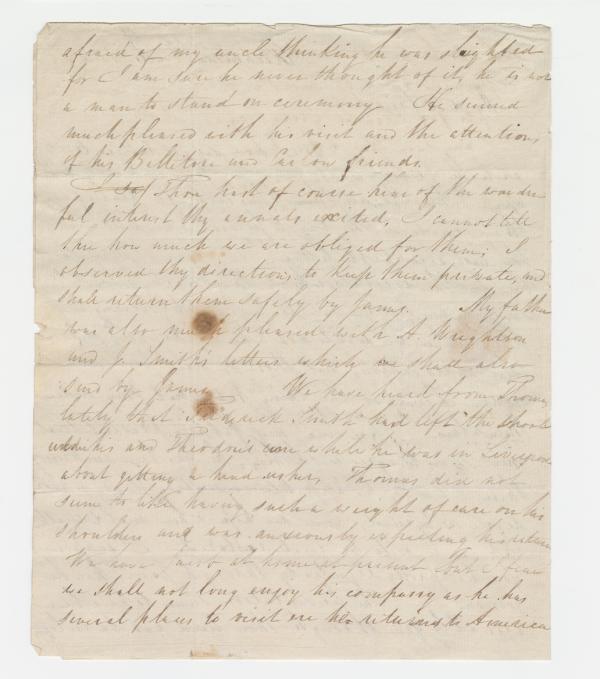 afraid of my uncle thinking he was slighted
for I am sure he never thought of it, he is not
a man to stand on ceremony. He seemed
much pleased with his visit and the attentions
of his Bellitore and Carlow friends.
I say Thou hast of course hear of the wonder
ful interest thy annals excited, I cannot tell
thee how much we are obliged for them; I
observed thy directions to keep them private, and
shall return them safely by James. My father
was also much pleased with A. Wrightson
and J. Smith's letters which we shall also
send by James We have heard from Thomas
lately that Frederick Smith had left the school
under his and Theodore's care while he was in Liverpool
about getting a head usher, Thomas did not
seem to like having such a weight of care on his
shoulders and was anxiously expecting his return
We have at home at present but I fear
we shall not long enjoy his company as he has
several places to visit ere he returns to America